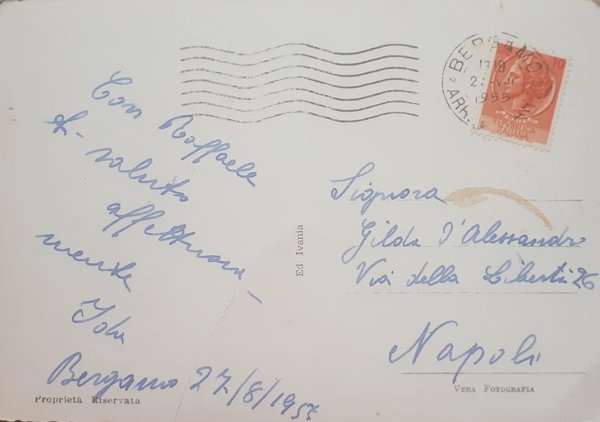 Con Raffaele
ti saluto
affettuosa-
mente
Ida
Bergamo 27/8/1955
Proprietà Riservata
Ed Ivania
BERGAMO
13-19
1955
ARR.
ITALIANA
Signora
Gilda D'Alessandro
Via della Libertà 26
Napoli
VERA FOTOGRAFIA